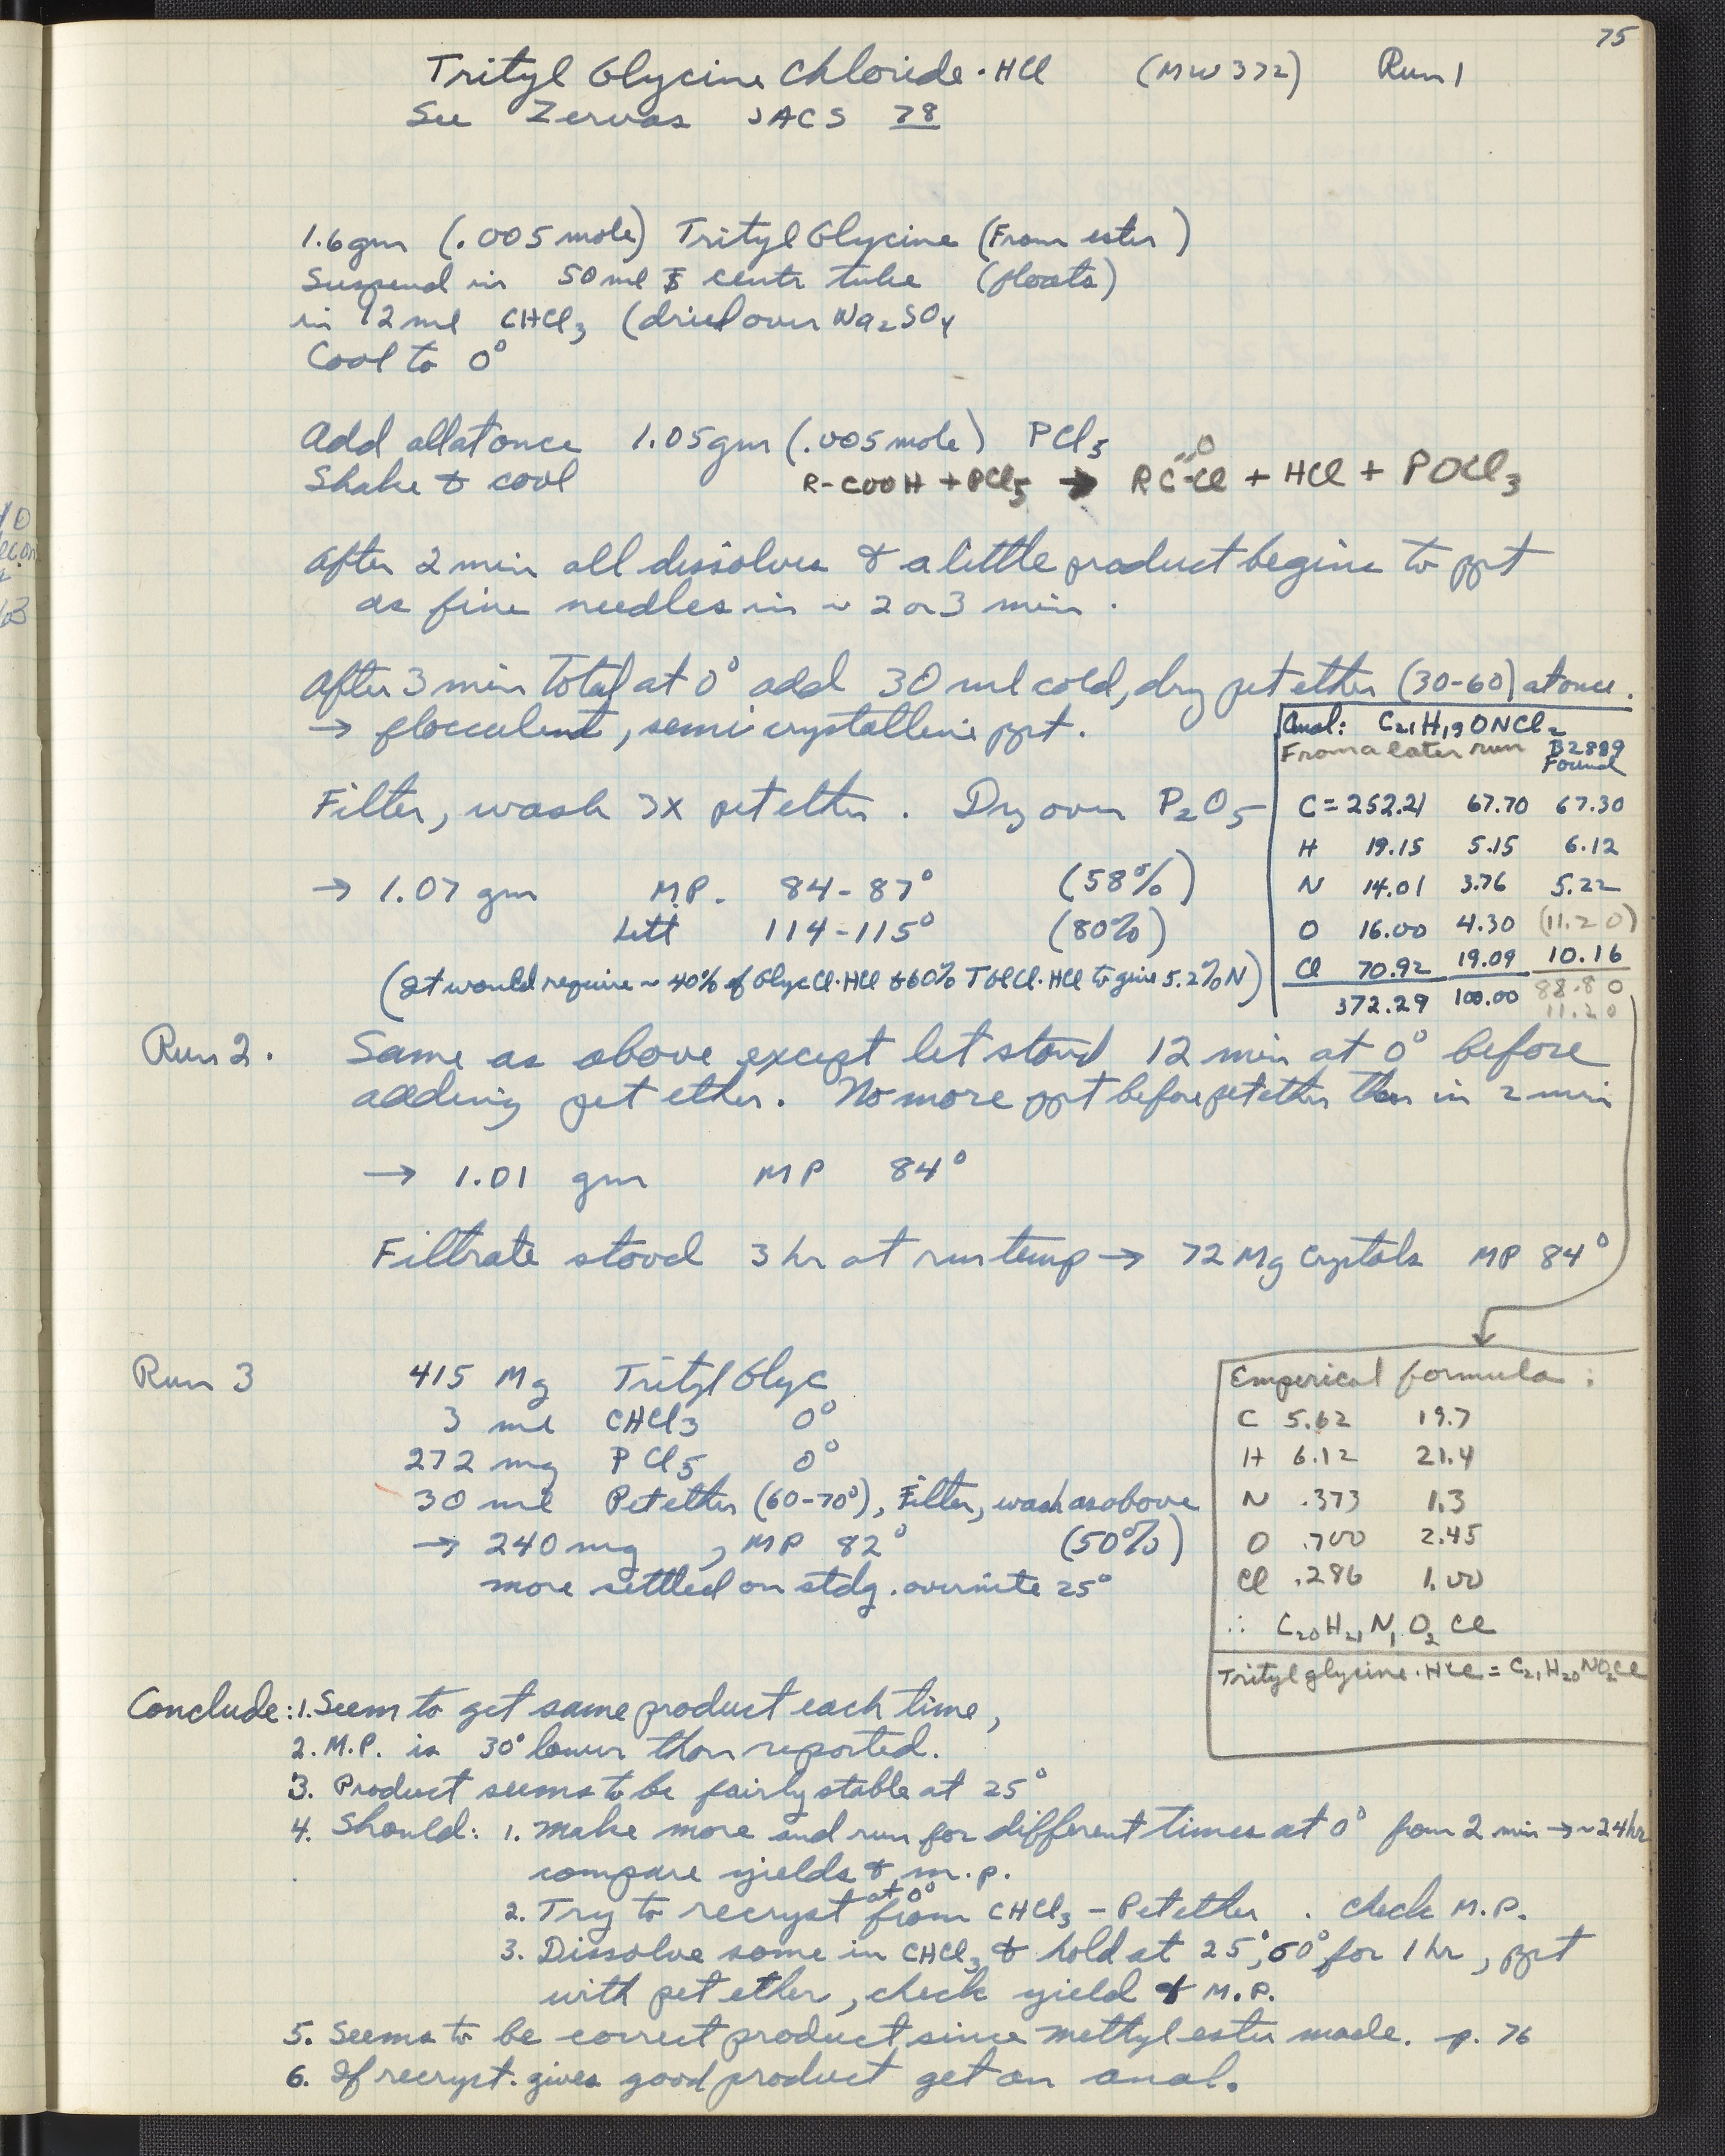 75
Trityl Glycine Chloride · HCl (MW 372) Run 1
See Zervas JACS 78
1.6 gm (.005 mole) Trityl Glycine (From ester)
Suspend in 50 ml centr tube (floats)
in 12 ml CHCl3 (dried over Na2SO4
Cool to 0°
Add all at once 1.05 gm (.005 mole) PCl5
Shake & cool R-COOH + PCl5 → RC(=O)-Cl + HCl + POCl3
After 2 min all dissolves & a little product begins to ppt
as fine needles in ~ 2 or 3 min.
After 3 min Total at 0° add 30 ml cold, dry pet ether (30-60) at once.
→ flocculent, semi crystalline ppt.
Filter, wash 3X pet ether. Dry over P2O5
→ 1.07 gm M.P. 84-87° (58%)
Litt 114-115° (80%)
(It would require ~ 40% of Glyc Cl·HCl & 60% TGlCl·HCl to give 5.2% N)
Anal: C21H19ONCl2
From a later run B2889
Found
C = 252.21 67.70 67.30
H 19.15 5.15 6.12
N 14.01 3.76 5.22
O 16.00 4.30 (11.20)
Cl 70.92 19.09 10.16
372.29 100.00 88.80
11.20
Run 2. Same as above except let stand 12 min at 0° before
adding pet ether. No more ppt before pet ether than in 2 min
→ 1.01 gm MP 84°
Filtrate stood 3 hr at rm temp → 72 Mg Crystals MP 84°
Run 3 415 Mg Trityl Glyc
3 ml CHCl3 0°
272 mg PCl5 0°
30 ml Pet ether (60-70°), Filter, wash as above
→ 240 mg, MP 82° (50%)
more settled on stdg. overnite 25°
Emperical formula:
C 5.62 19.7
H 6.12 21.4
N .373 1.3
O .700 2.45
Cl .286 1.00
∴ C20H21N1O2Cl
Trityl glycine · HCl = C21H20NO2Cl
Conclude: 1. Seem to get same product each time,
2. M.P. is 30° lower than reported.
3. Product seems to be fairly stable at 25°
4. Should: 1. Make more and run for different times at 0° from 2 min → ~24 hr
compare yields & m.p.
2. Try to recryst at 0° from CHCl3 - Pet ether. Check M.P.
3. Dissolve some in CHCl3 & hold at 25°, 60° for 1 hr, ppt
with pet ether, check yield & M.P.
5. Seems to be correct product since methyl ester made. p. 76
6. If recryst. gives good product get an anal.